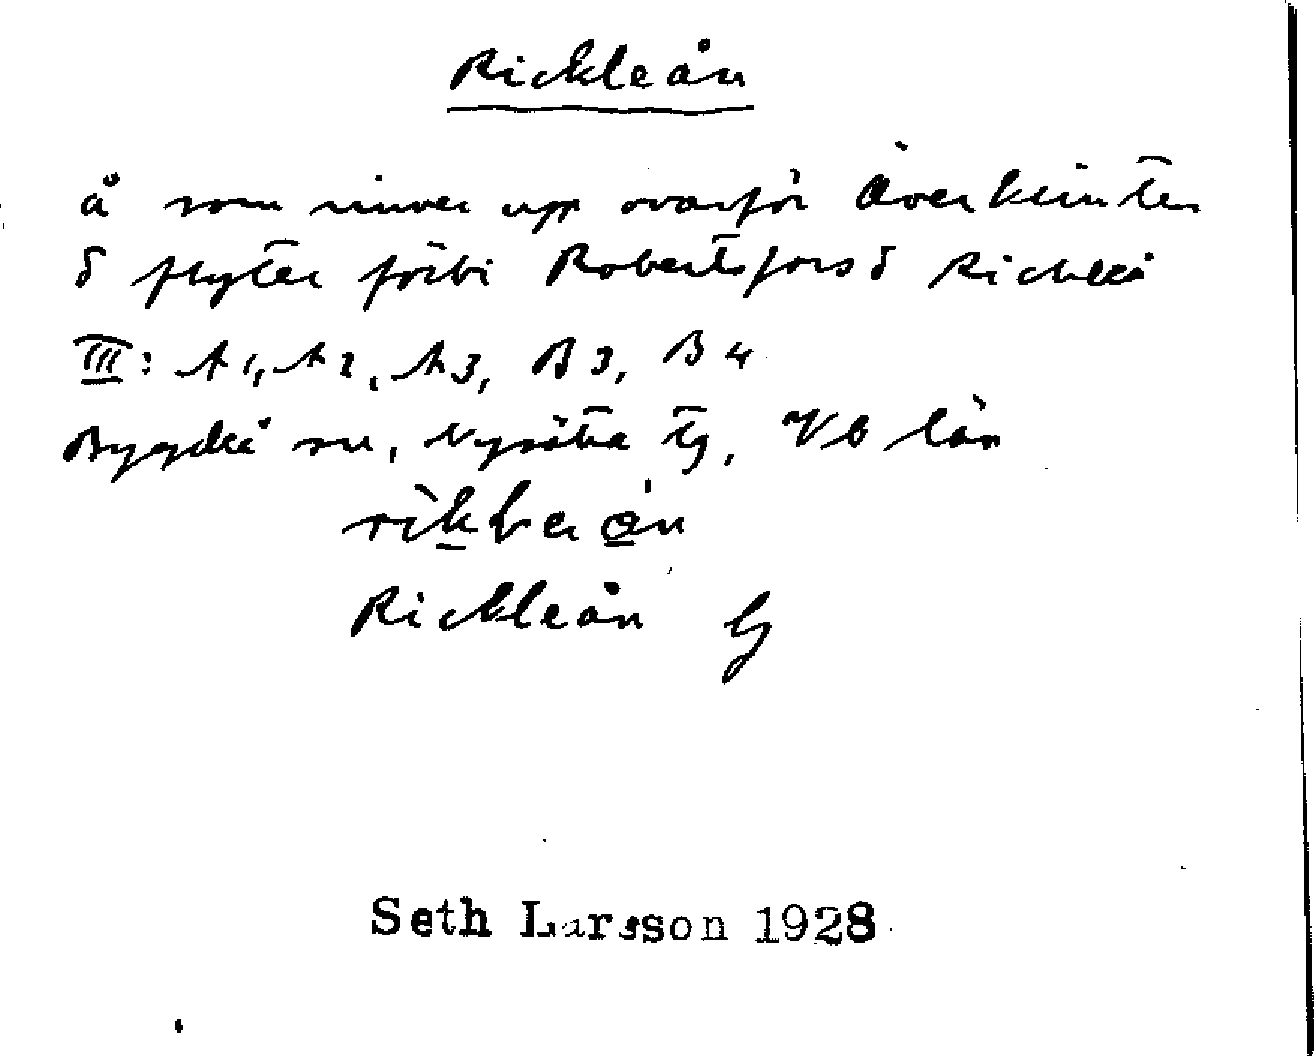 Rickleån
å som rinner upp ovanför Överklinten
o flyter förbi Robertsfors o Rickleå
III: A1, A2, A3, B3, B4
Bygdeå sn, Nysätra tg, Vb län
Rickleån G
Seth Larsson 1928